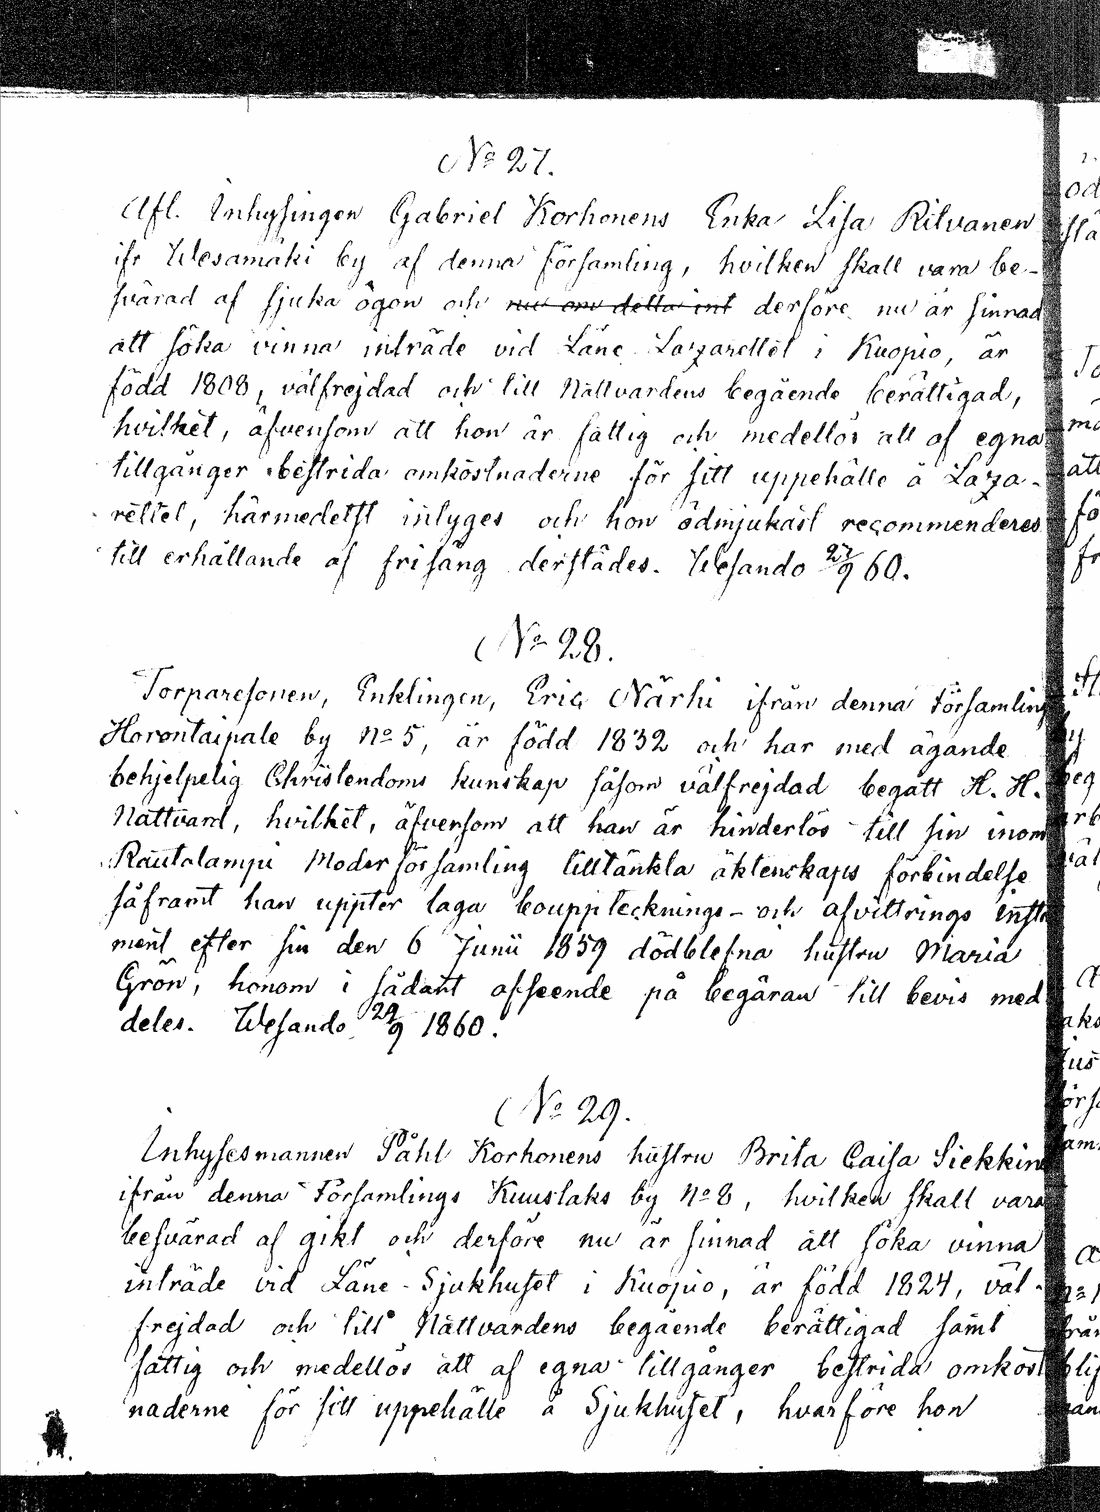 No 27.
Afl. Inhysingen Gabriel Korhonens Enka Lisa Ritvanen
ifr Wesamäki by af denna församling, hvilken skall vara be-
svärad af sjuka ögon och nu om detta int derföre nu är sinnad
att söka vinna inträde vid Läns Lazarettet i Kuopio, är
född 1808, välfrejdad och till Nattvardens begående berättigad,
hvilket, äfvensom att hon är fattig och medellös att af egna
tillgånger bestrida omkostnaderne för sitt uppehälle å Laza-
rettet, härmedelst intyges och hon ödmjukast recommenderes
till erhållande af frisäng derstädes. Wesando 27/9 60.
No 28.
Torparesonen, Enklingen, Eric Närhi ifrån denna Församling
Horontaipale by No 5, är född 1832 och har med ägande
behjelpelig Christendoms kunskap såsom välfrejdad begått H. H.
Nattvard, hvilket, äfvensom att han är hinderlös till sin inom
Rautalampi Moderförsamling tilltänkta äktenskaps förbindelse
såframt han uppter laga boupptecknings- och afvittrings instr
ment efter sin den 6 Junii 1859 dödblefna hustru Maria
Grön, honom i sådant afseende på begäran till bevis med
deles. Wesando 29/9 1860.
No 29.
Inhysesmannen Påhl Korhonens hustru Brita Caisa Siekkin
ifrån denna Församlings Kuuslaks by No 8, hvilken skall vara
besvärad af gikt och derföre nu är sinnad att söka vinna
inträde vid Läns-Sjukhuset i Kuopio, är född 1824, väl-
frejdad och till Nattvardens begående berättigad samt
fattig och medellös att af egna tillgånger bestrida omkost
naderne för sitt uppehälle å Sjukhuset, hvarföre hon